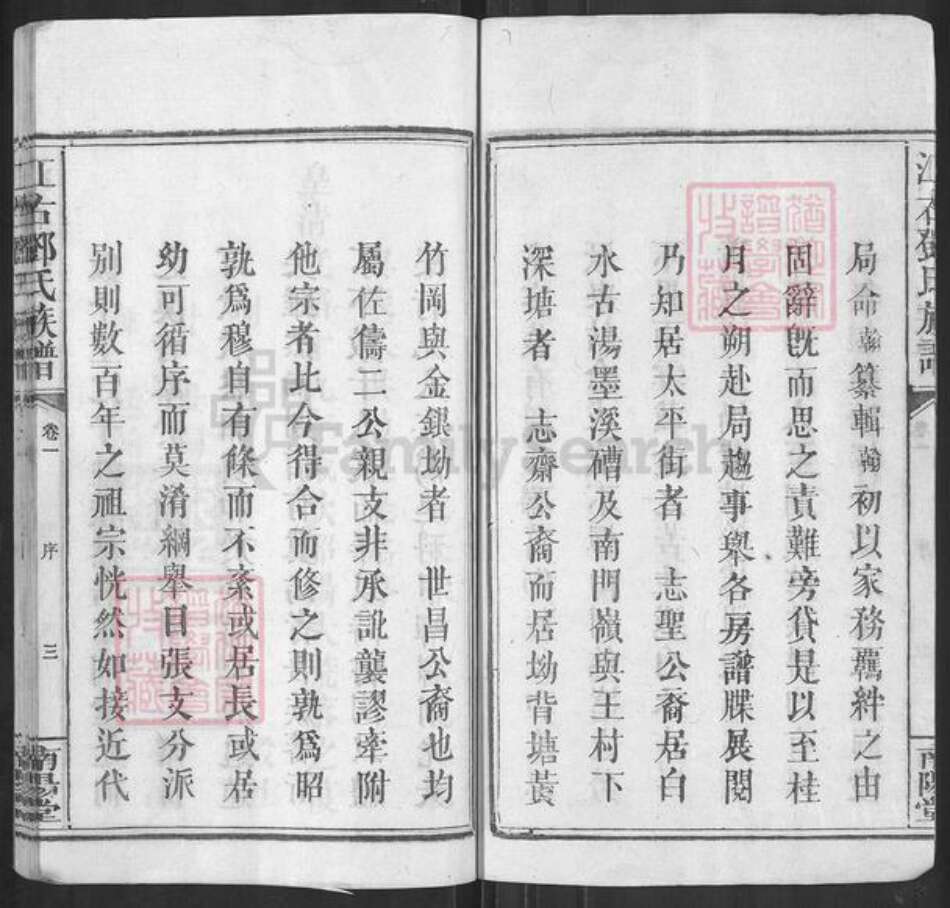 局命翰纂輯翰初以家務羈絆之由
固辭旣而思之責難旁貸是以至桂
月之朔赴局趨事舉各房譜牒展閱
乃知居太平街者 志聖公裔居白
水古湯墨溪磻及南門嶺與王村下
深塘者 志齋公裔而居坳背塘黃
竹岡與金銀坳者 世昌公裔也均
屬佐儔二公親支非承訛襲謬牽附
他宗者比今得合而修之則孰爲昭
孰爲穆自有條而不紊或居長或居
幼可循序而莫淆綱舉目張支分派
別則數百年之祖宗恍然如接近代
江右鄧氏族譜
卷一
序
三
南陽堂
江右鄧氏族譜
南陽堂
FamilySearch